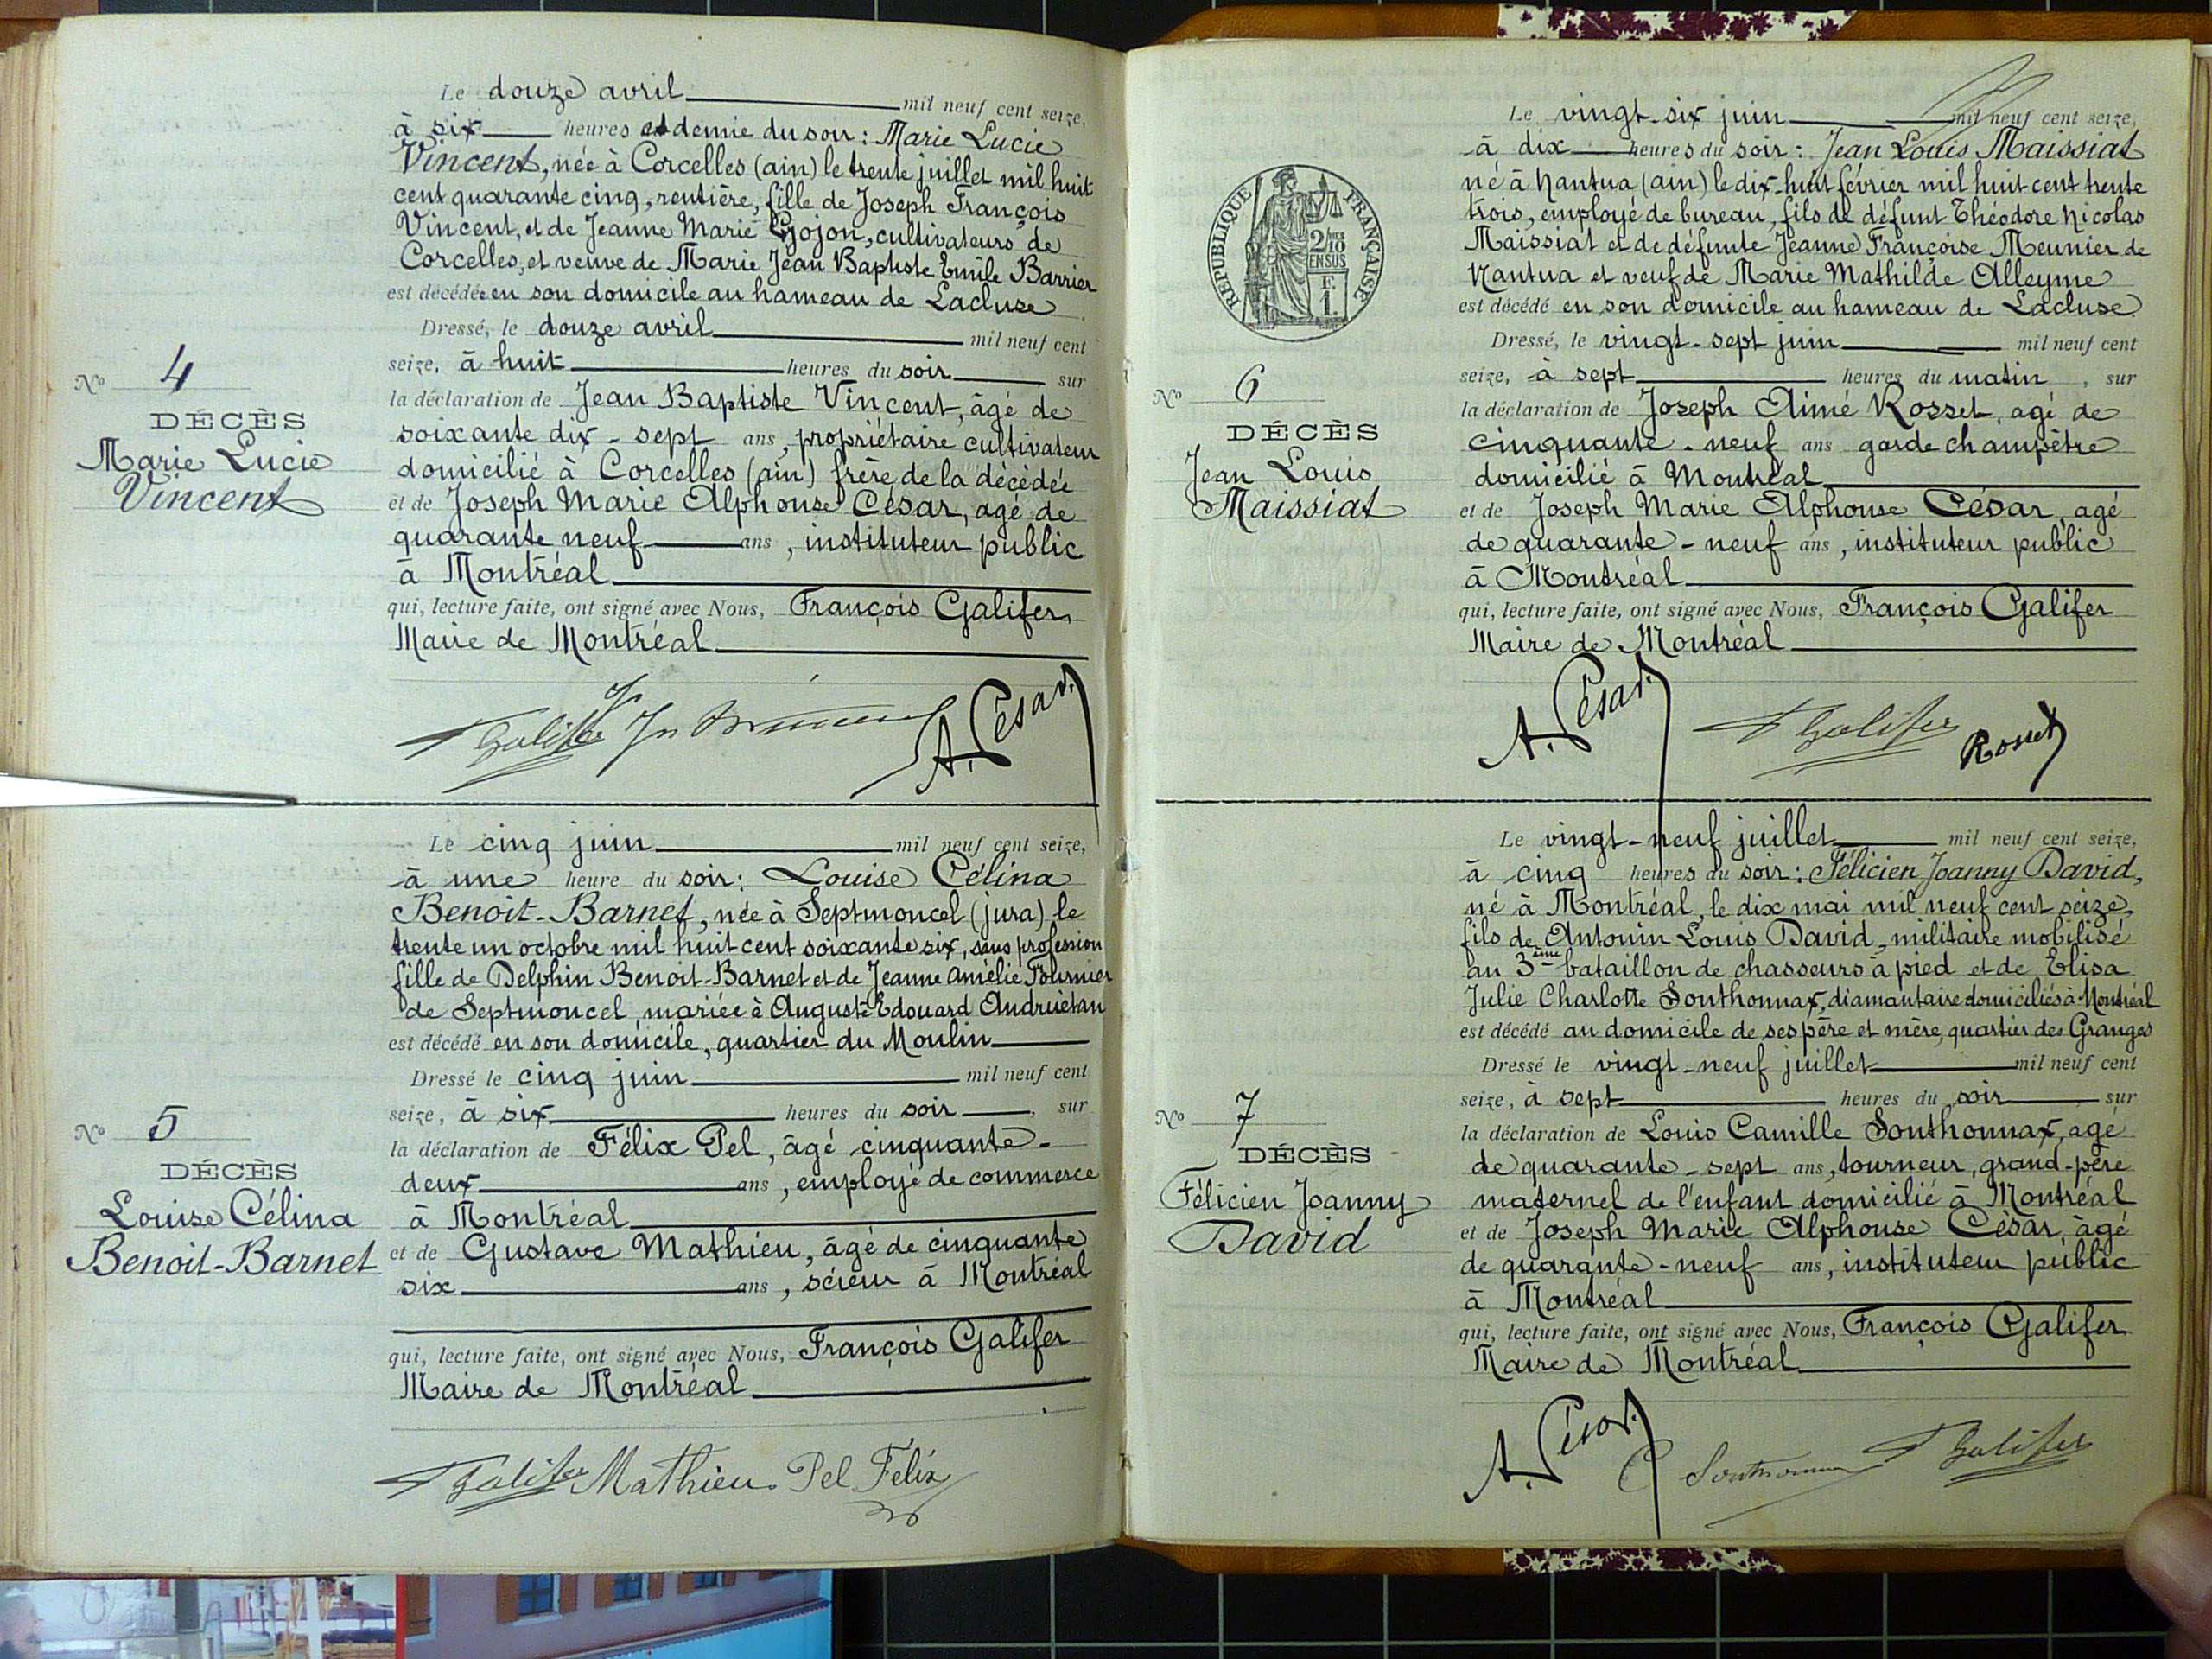 Le douze avril mil neuf cent seize,
à six heures et demie du soir : Marie Lucie
Vincent, née à Corcelles (ain) le trente juillet mil huit
cent quarante cinq, rentière, fille de Joseph François
Vincent, et de Jeanne Marie Gojon, cultivateurs de
Corcelles, et veuve de Marie Jean Baptiste Emile Barrier
est décédée en son domicile au hameau de Lacluse
Dressé, le douze avril mil neuf cent
seize, à huit heures du soir sur
la déclaration de Jean Baptiste Vincent, âgé de
soixante dix-sept ans, propriétaire cultivateur
domicilié à Corcelles (ain) frère de la décédée
et de Joseph Marie Alphonse César, agé de
quarante neuf ans, instituteur public
à Montréal
qui, lecture faite, ont signé avec Nous, François Galifer,
Maire de Montréal
Nº 4
DÉCÈS
Marie Lucie
Vincent
F Galifer Jn Vincent A. César
Le cinq juin mil neuf cent seize,
à une heure du soir : Louise Célina
Benoit-Barnet, née à Septmoncel (jura) le
trente un octobre mil huit cent soixante six, sans profession
fille de Delphin Benoit-Barnet et de Jeanne Amélie Fournier
de Septmoncel, mariée à Auguste Edouard Andruétan
est décédé en son domicile, quartier du Moulin
Dressé le cinq juin mil neuf cent
seize, à six heures du soir, sur
la déclaration de Félix Pel, âgé cinquante-
deux ans, employé de commerce
à Montréal
et de Gustave Mathieu, âgé de cinquante
six ans, scieur à Montréal
qui, lecture faite, ont signé avec Nous, François Galifer
Maire de Montréal
Nº 5
DÉCÈS
Louise Célina
Benoit-Barnet
F Galifer Mathieu Pel Felix
Le vingt-six juin mil neuf cent seize,
à dix heures du soir : Jean Louis Maissiat
né à Nantua (ain) le dix-huit février mil huit cent trente
trois, employé de bureau, fils de défunt Théodore Nicolas
Maissiat et de défunte Jeanne Françoise Meunier de
Nantua et veuf de Marie Mathilde Alleyme
est décédé en son domicile au hameau de Lacluse
Dressé, le vingt-sept juin mil neuf cent
seize, à sept heures du matin, sur
la déclaration de Joseph Aimé Rosset, agé de
cinquante-neuf ans garde champêtre
domicilié à Montréal
et de Joseph Marie Alphonse César, agé
de quarante-neuf ans, instituteur public
à Montréal
qui, lecture faite, ont signé avec Nous, François Galifer
Maire de Montréal
REPUBLIQUE FRANÇAISE
2/10 EN SUS
F. 1.
Nº 6
DÉCÈS
Jean Louis
Maissiat
A. César F Galifer Rosset
Le vingt-neuf juillet mil neuf cent seize,
à cinq heures du soir : Félicien Joanny David,
né à Montréal, le dix mai mil neuf cent seize,
fils de Antonin Louis David, militaire mobilisé
au 3ème bataillon de chasseurs à pied et de Elisa
Julie Charlotte Sonthonnax, diamantaire domiciliés à Montréal
est décédé au domicile de ses père et mère, quartier des Granges
Dressé le vingt-neuf juillet mil neuf cent
seize, à sept heures du soir, sur
la déclaration de Louis Camille Sonthonnax, agé
de quarante-sept ans, tourneur, grand-père
maternel de l'enfant domicilié à Montréal
et de Joseph Marie Alphonse César, âgé
de quarante-neuf ans, instituteur public
à Montréal
qui, lecture faite, ont signé avec Nous, François Galifer
Maire de Montréal
Nº 7
DÉCÈS
Félicien Joanny
David
A. César C Sonthonnax F Galifer